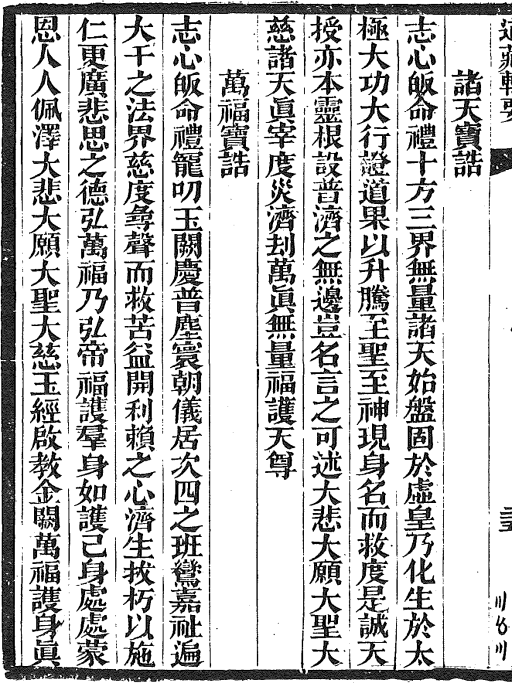 道藏輯要
諸天寶誥
志心皈命禮十方三界無量諸天始盤固於虛皇乃化生於太
極大功大行證道果以升騰至聖至神現身名而救度是誠天
授亦本靈根設普濟之無邊豈名言之可述大悲大願大聖大
慈諸天眞宰度災濟刦萬眞無量福護天尊
萬福寶誥
志心皈命禮寵叨玉闕慶普塵寰朝儀居次四之班鸞嘉祉遍
大千之法界慈度尋聲而救苦益開利賴之心濟生拔朽以施
仁更廣悲思之德弘萬福乃弘帝福護羣身如護己身處處蒙
恩人人佩澤大悲大願大聖大慈玉經啟教金闕萬福護身眞